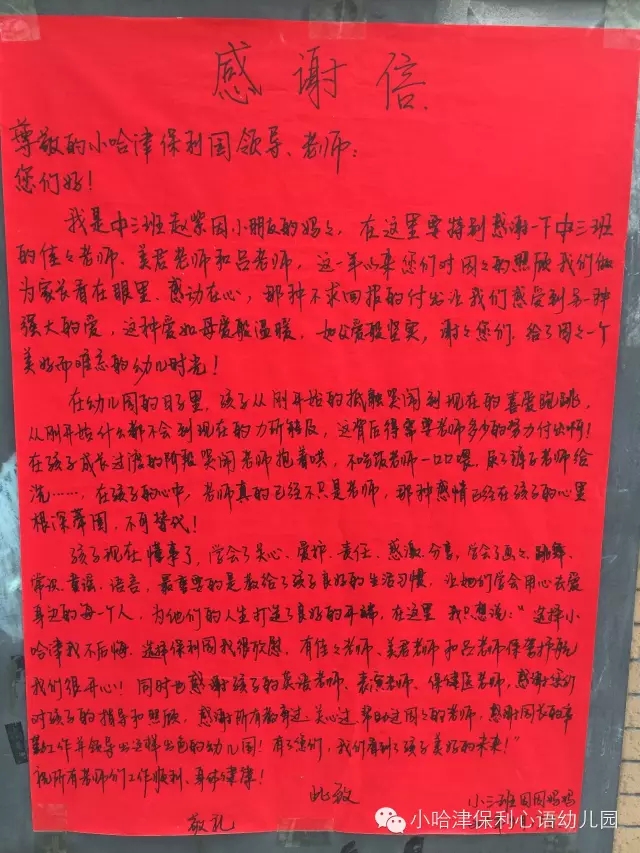 感谢信
尊敬的小哈津保利园领导、老师:
您们好!
我是中三班赵紫因小朋友的妈々,在这里要特别感谢一下中三班
的佳々老师、美君老师和吕老师,这一年以来您们对因々的照顾我们做
为家长看在眼里、感动在心,那种不求回报的付出让我们感受到另一种
强大的爱,这种爱如母爱般温暖,如父爱般坚实,谢々您们,给了因々一个
美好而难忘的幼儿时光!
在幼儿园的日子里,孩子从刚开始的抵触哭闹到现在的喜爱跑跳,
从刚开始什么都不会到现在的力所能及,这背后得需要老师多少的努力付出啊!
在孩子成长过渡的阶段哭闹老师抱着哄,不吃饭老师一口口喂,尿了裤子老师给
洗……,在孩子的心中,老师真的已经不只是老师,那种感情已经在孩子的心里
根深蒂固,不可替代!
孩子现在懂事了,学会了关心、爱护、责任、感激、分享,学会了画々、跳舞、
常识、童谣、语言,最重要的是教给了孩子良好的生活习惯,让她们学会用心去爱
身边的每一个人,为他们的人生打造了良好的开端,在这里我只想说:“选择小
哈津我不后悔,选择保利园我很欣慰,有佳々老师、美君老师和吕老师保驾护航
我们很开心!同时也感谢孩子的英语老师、表演老师、保健医老师,感谢您们
对孩子的指导和照顾,感谢所有教育过、关心过、帮助过因々的老师,感谢园长的辛
勤工作并领导出这样出色的幼儿园!有了您们,我们看到了孩子美好的未来!”
祝所有老师们工作顺利、身体健康!
此致
敬礼
小三班因因妈妈
小哈津保利心语幼儿园